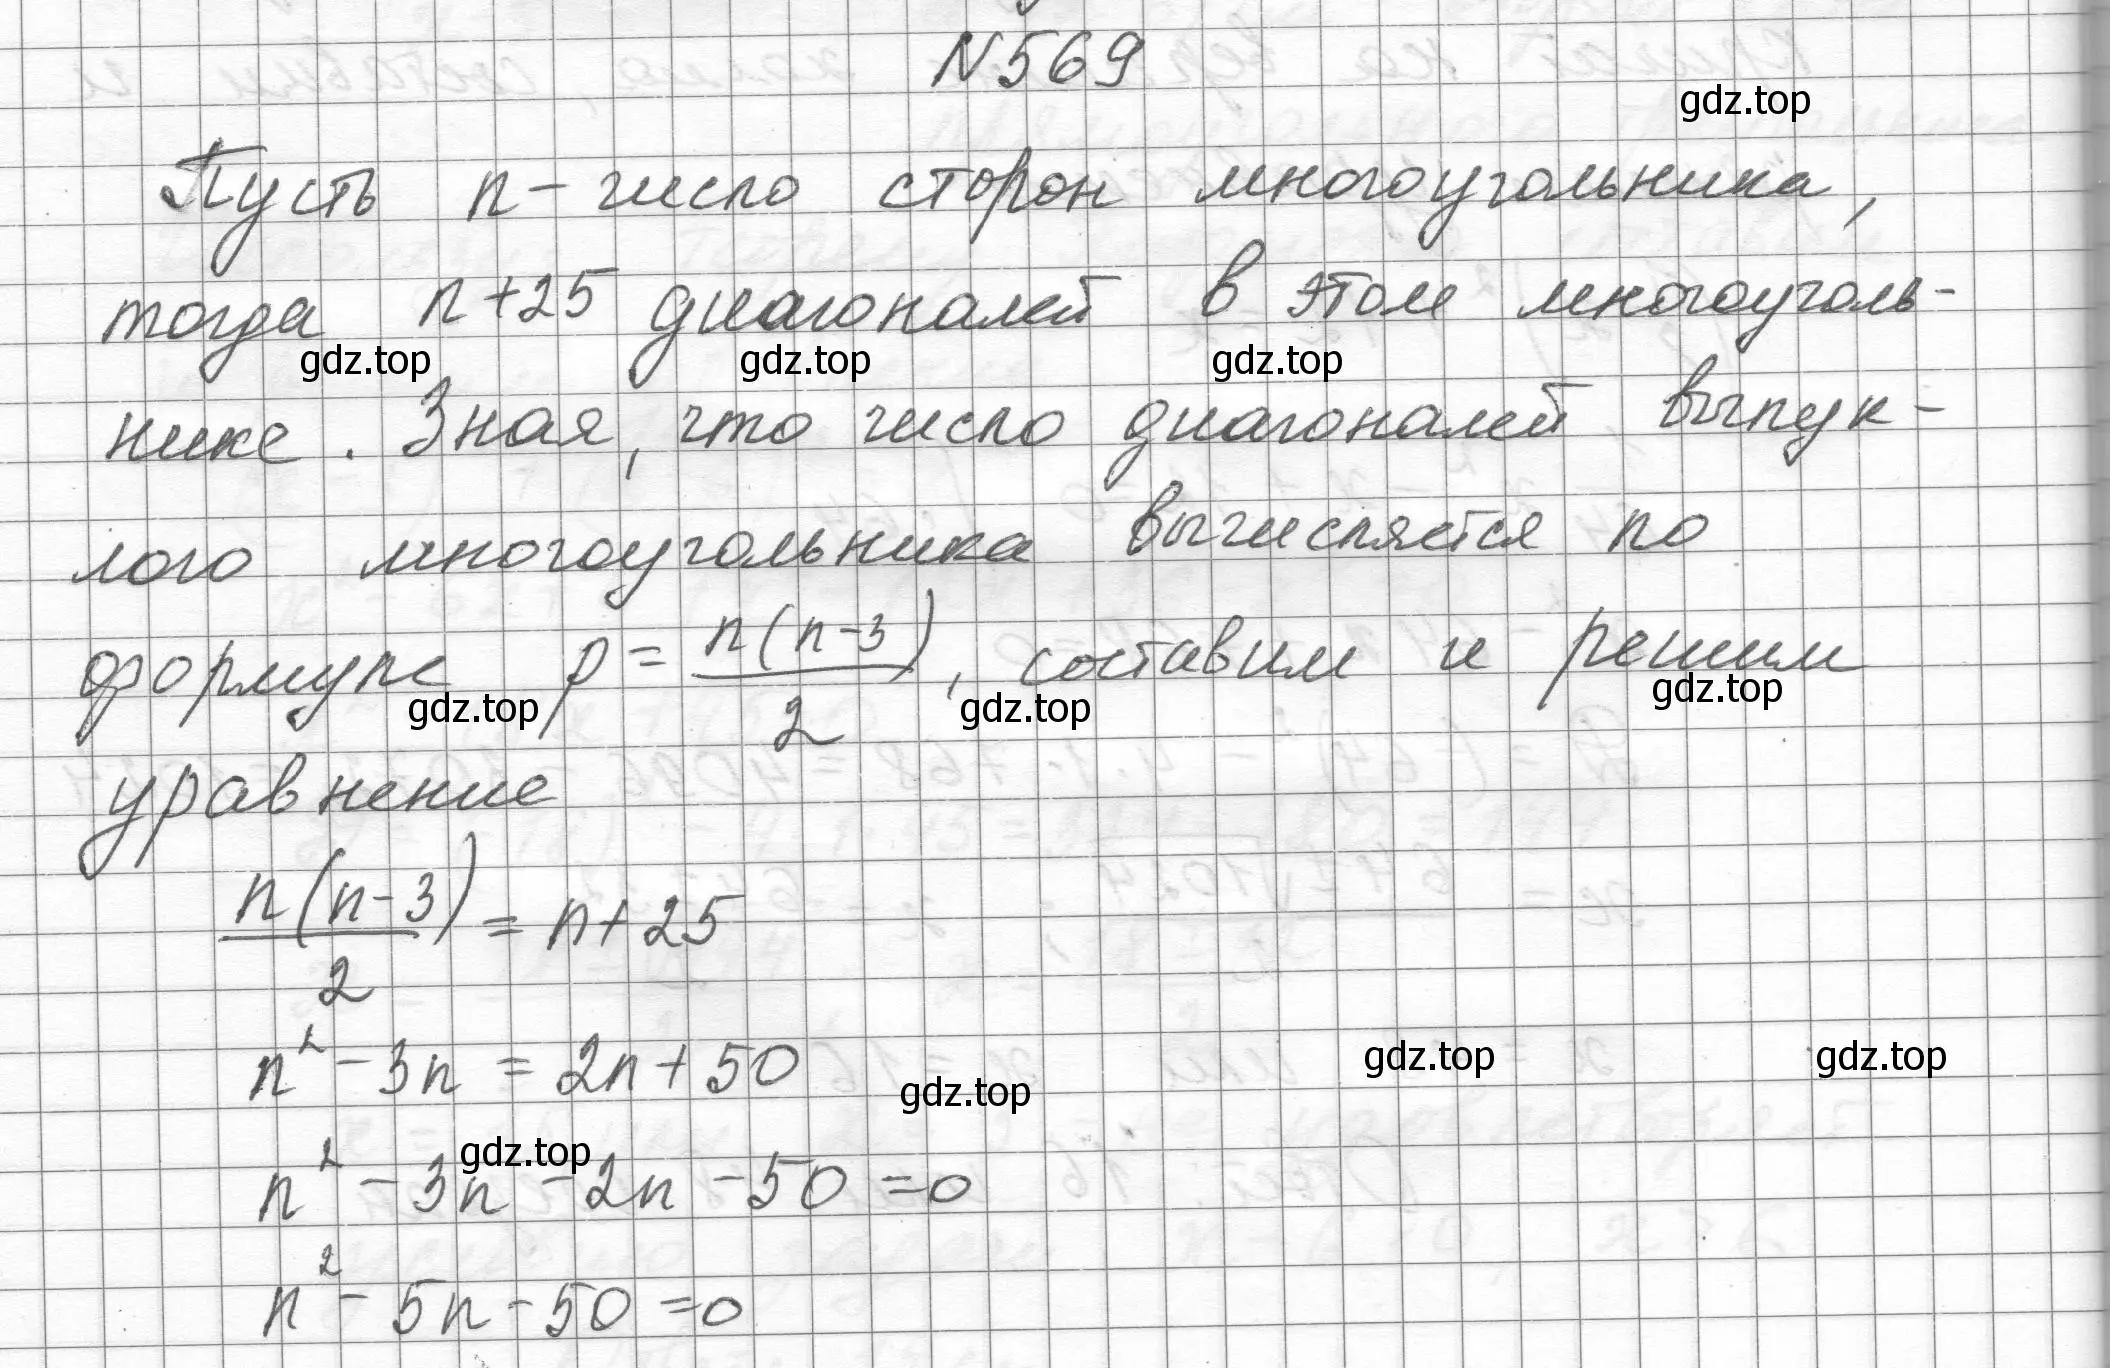 N569
gdz.top
Пусть n - число сторон многоугольника,
тогда n+25 диагоналей в этом многоуголь-
gdz.top gdz.top gdz.top
нике. Зная, что число диагоналей выпук-
лого многоугольника вычисляется по
формуле p = \frac{n(n-3)}{2}, составим и решим
gdz.top gdz.top gdz.top
уравнение
\frac{n(n-3)}{2} = n+25
n² - 3n = 2n + 50
gdz.top gdz.top gdz.top
gdz.top
n² - 3n - 2n - 50 = 0
n² - 5n - 50 = 0